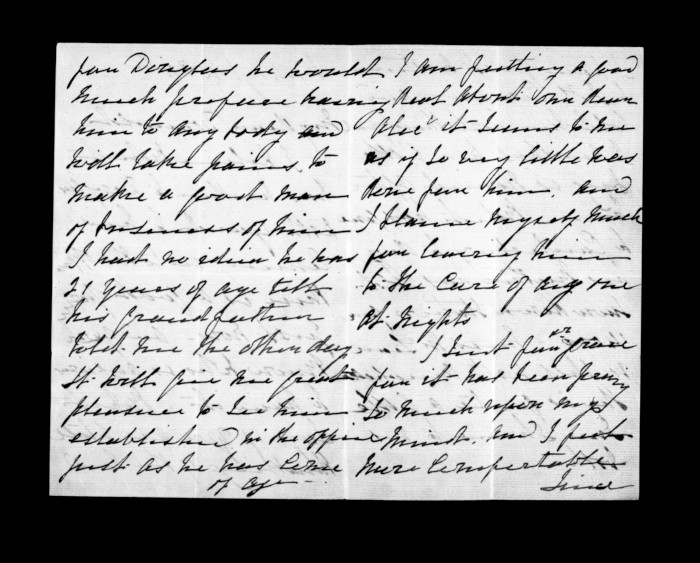 for Douglas he would
much prefer having
him to any body and
will take pains to
make a good man
of business of him
I had no idea he was
21 years of age till
his grandfather
told me the other day
it will give me great
pleasure to see him
established in the office
just as he has come
of age
I am fretting a good
deal about our dear
Alec it seems to me
as if so very little was
done for him, and
I blame myself much
for leaving him
to the care of any one
at nights
I sent for
for it has been
so much upon my
mind, and I feel
more comfortable
since